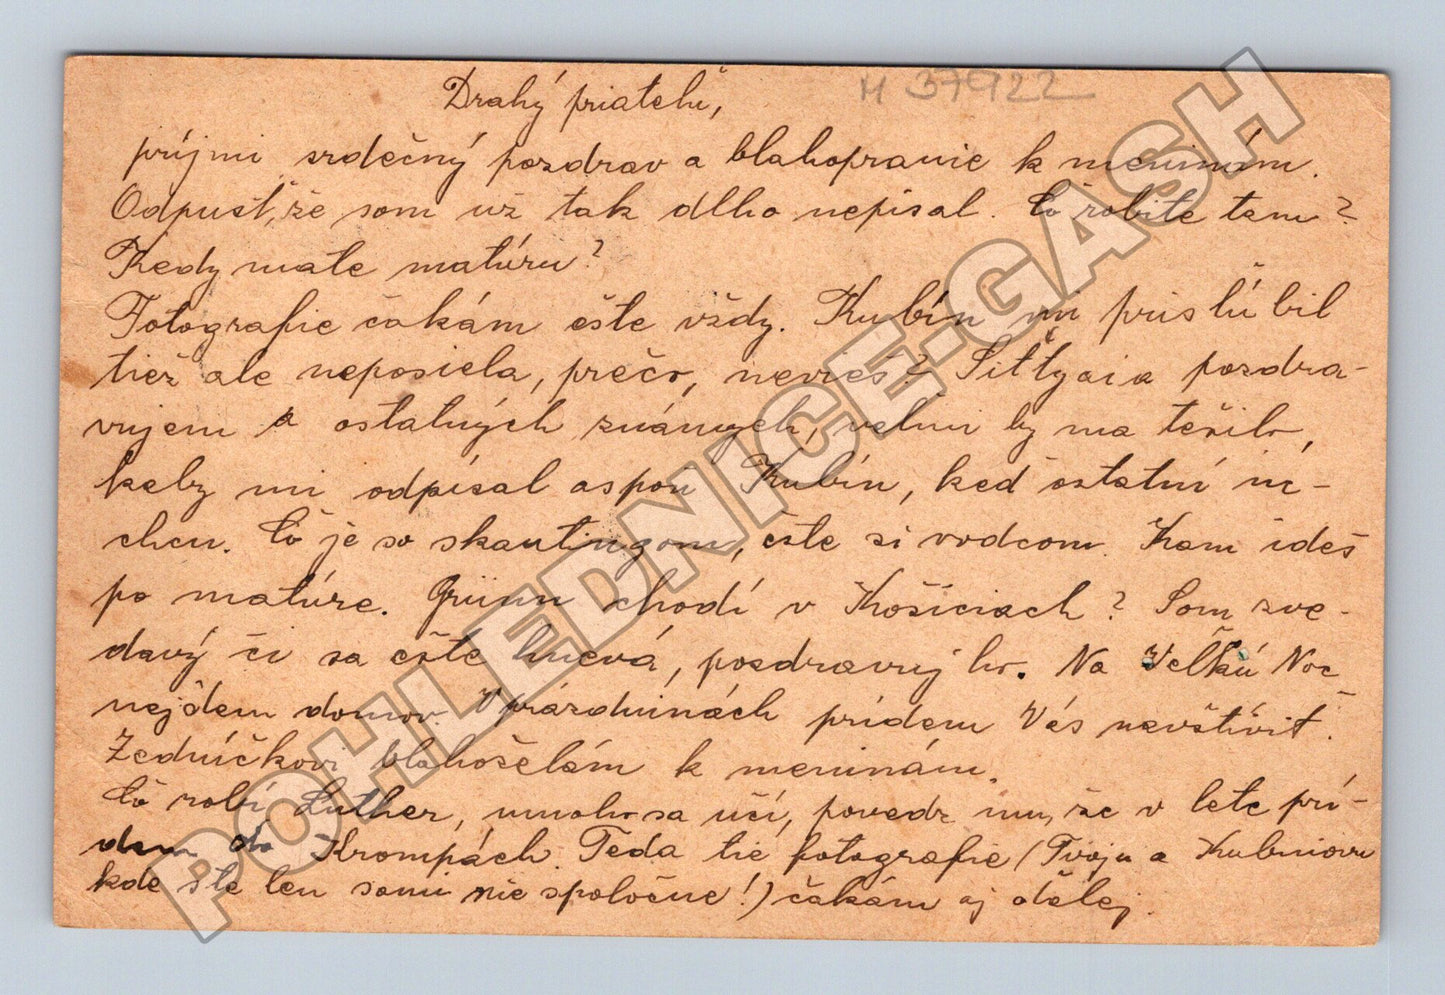 Drahý priatelu,
H 37922
prijmi srdečný pozdrav a blahopranie k meninám.
Odpusť, že som už tak dlho nepísal. Čo robíte tam?
Kedy máte matúru?
Fotografie čakám ešte vždy. Kubín mi prislúbil
tiež ale neposiela, prečo, nevieš? pozdra-
vujem a ostatných známych, velmi by ma tešilo,
keby mi odpísal aspoň Kubín, keď ostatní ne-
chcu. Čo je so skautingom, ešte si vodcom. Kam ideš
po matúre. Grünn chodí v Košiciach? Som zve-
davý či sa ešte hnevá, pozdravuj ho. Na Veľkú Noc
nejdem domov. V prázdninách prídem Vás navštíviť.
Zedníčkovi blahoželám k meninám.
Čo robí Luther, mnoho sa učí, povedz mu, že v lete prí-
dem do Krompách. Teda tie fotografie (Tvoju a Kubínovu
kde ste len sami nie spoločne!) čakám aj ďalej.
POHLEDNICE-GASH